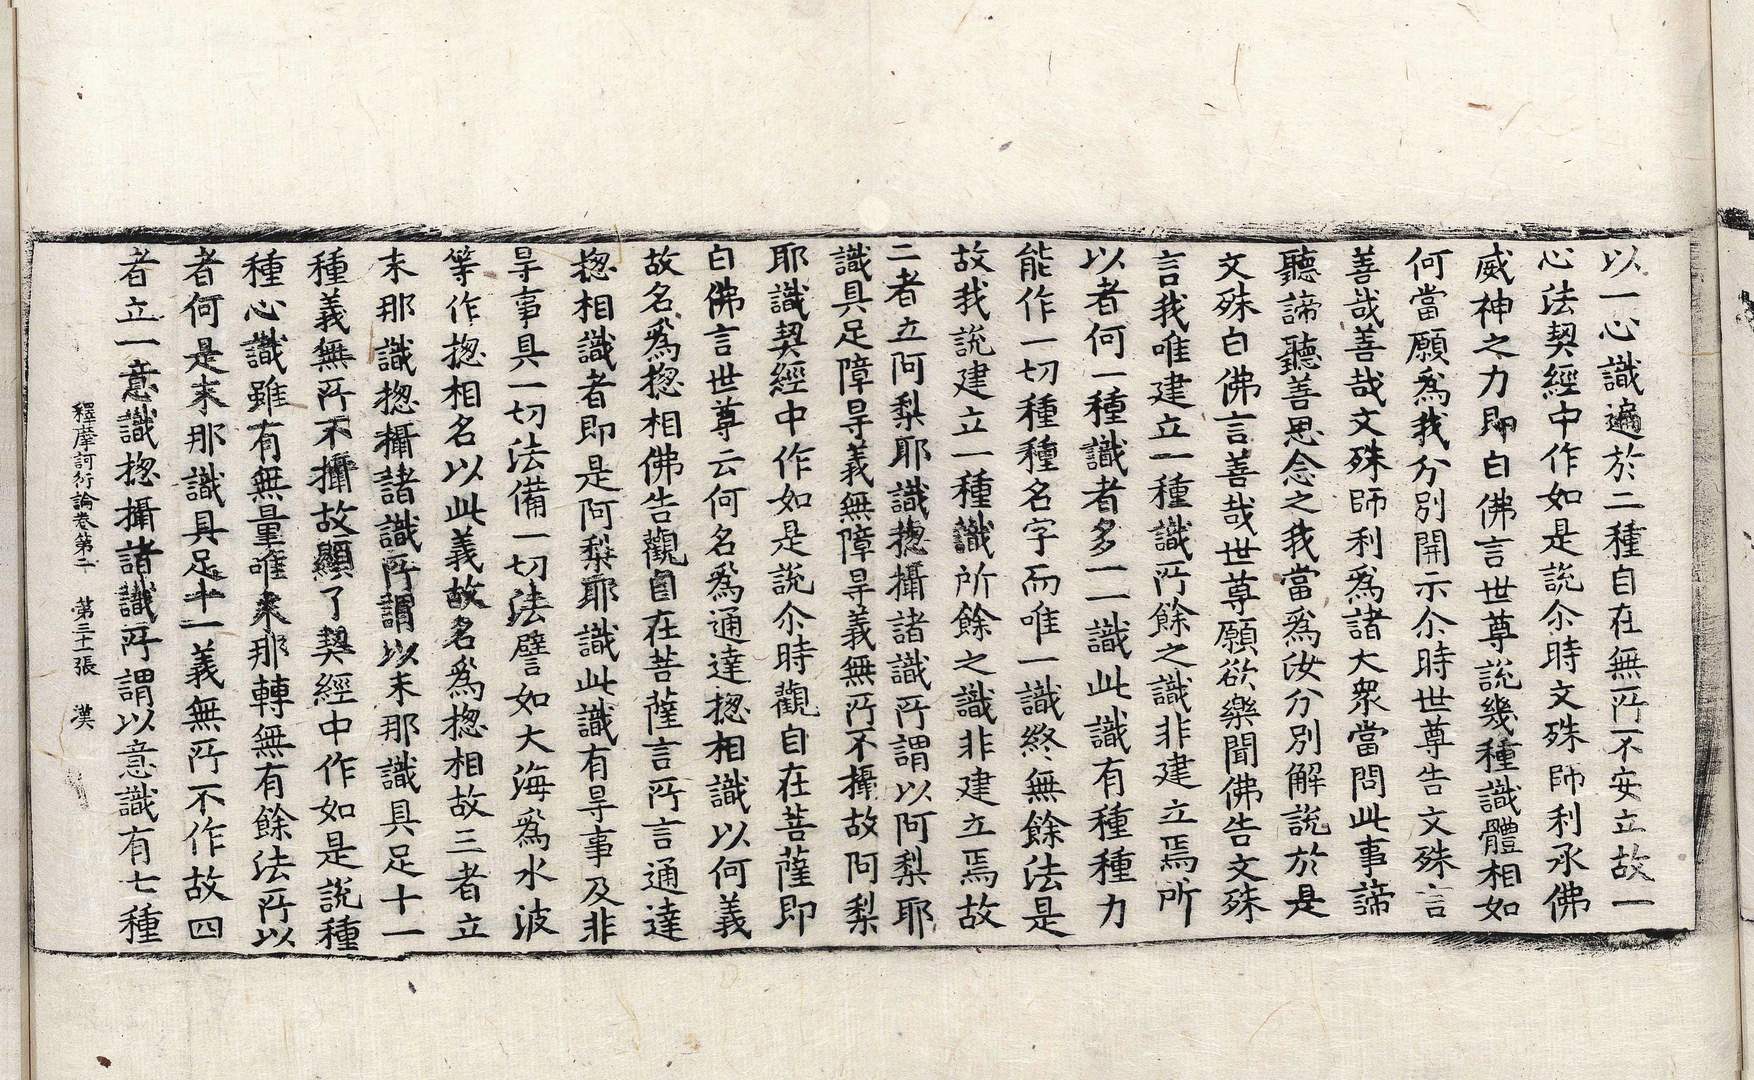 以一心識遍於二種自在無所不安立故一
心法契經中作如是說尒時文殊師利承佛
威神之力即白佛言世尊說幾種識體相如
何當願爲我分別開示尒時世尊告文殊言
善哉善哉文殊師利爲諸大衆當問此事諦
聽諦聽善思念之我當爲汝分別解說於是
文殊白佛言善哉世尊願欲樂聞佛告文殊
言我唯建立一種識所餘之識非建立焉所
以者何一種識者多一一識此識有種種力
能作一切種種名字而唯一識終無餘法是
故我說建立一種識所餘之識非建立焉故
二者立阿梨耶識揔攝諸識所謂以阿梨耶
識具足障㝵義無障㝵義無所不攝故阿梨
耶識契經中作如是說尒時觀自在菩薩即
白佛言世尊云何名爲通達揔相識以何義
故名爲揔相佛告觀自在菩薩言所言通達
揔相識者即是阿梨耶識此識有㝵事及非
㝵事具一切法備一切法譬如大海爲水波
等作揔相名以此義故名爲揔相故三者立
末那識揔攝諸識所謂以末那識具足十一
種義無所不攝故顯了契經中作如是說種
種心識雖有無量唯末那轉無有餘法所以
者何是末那識具足十一義無所不作故四
者立一意識揔攝諸識所謂以意識有七種
釋摩訶衍論卷第二 第三十一張 漢